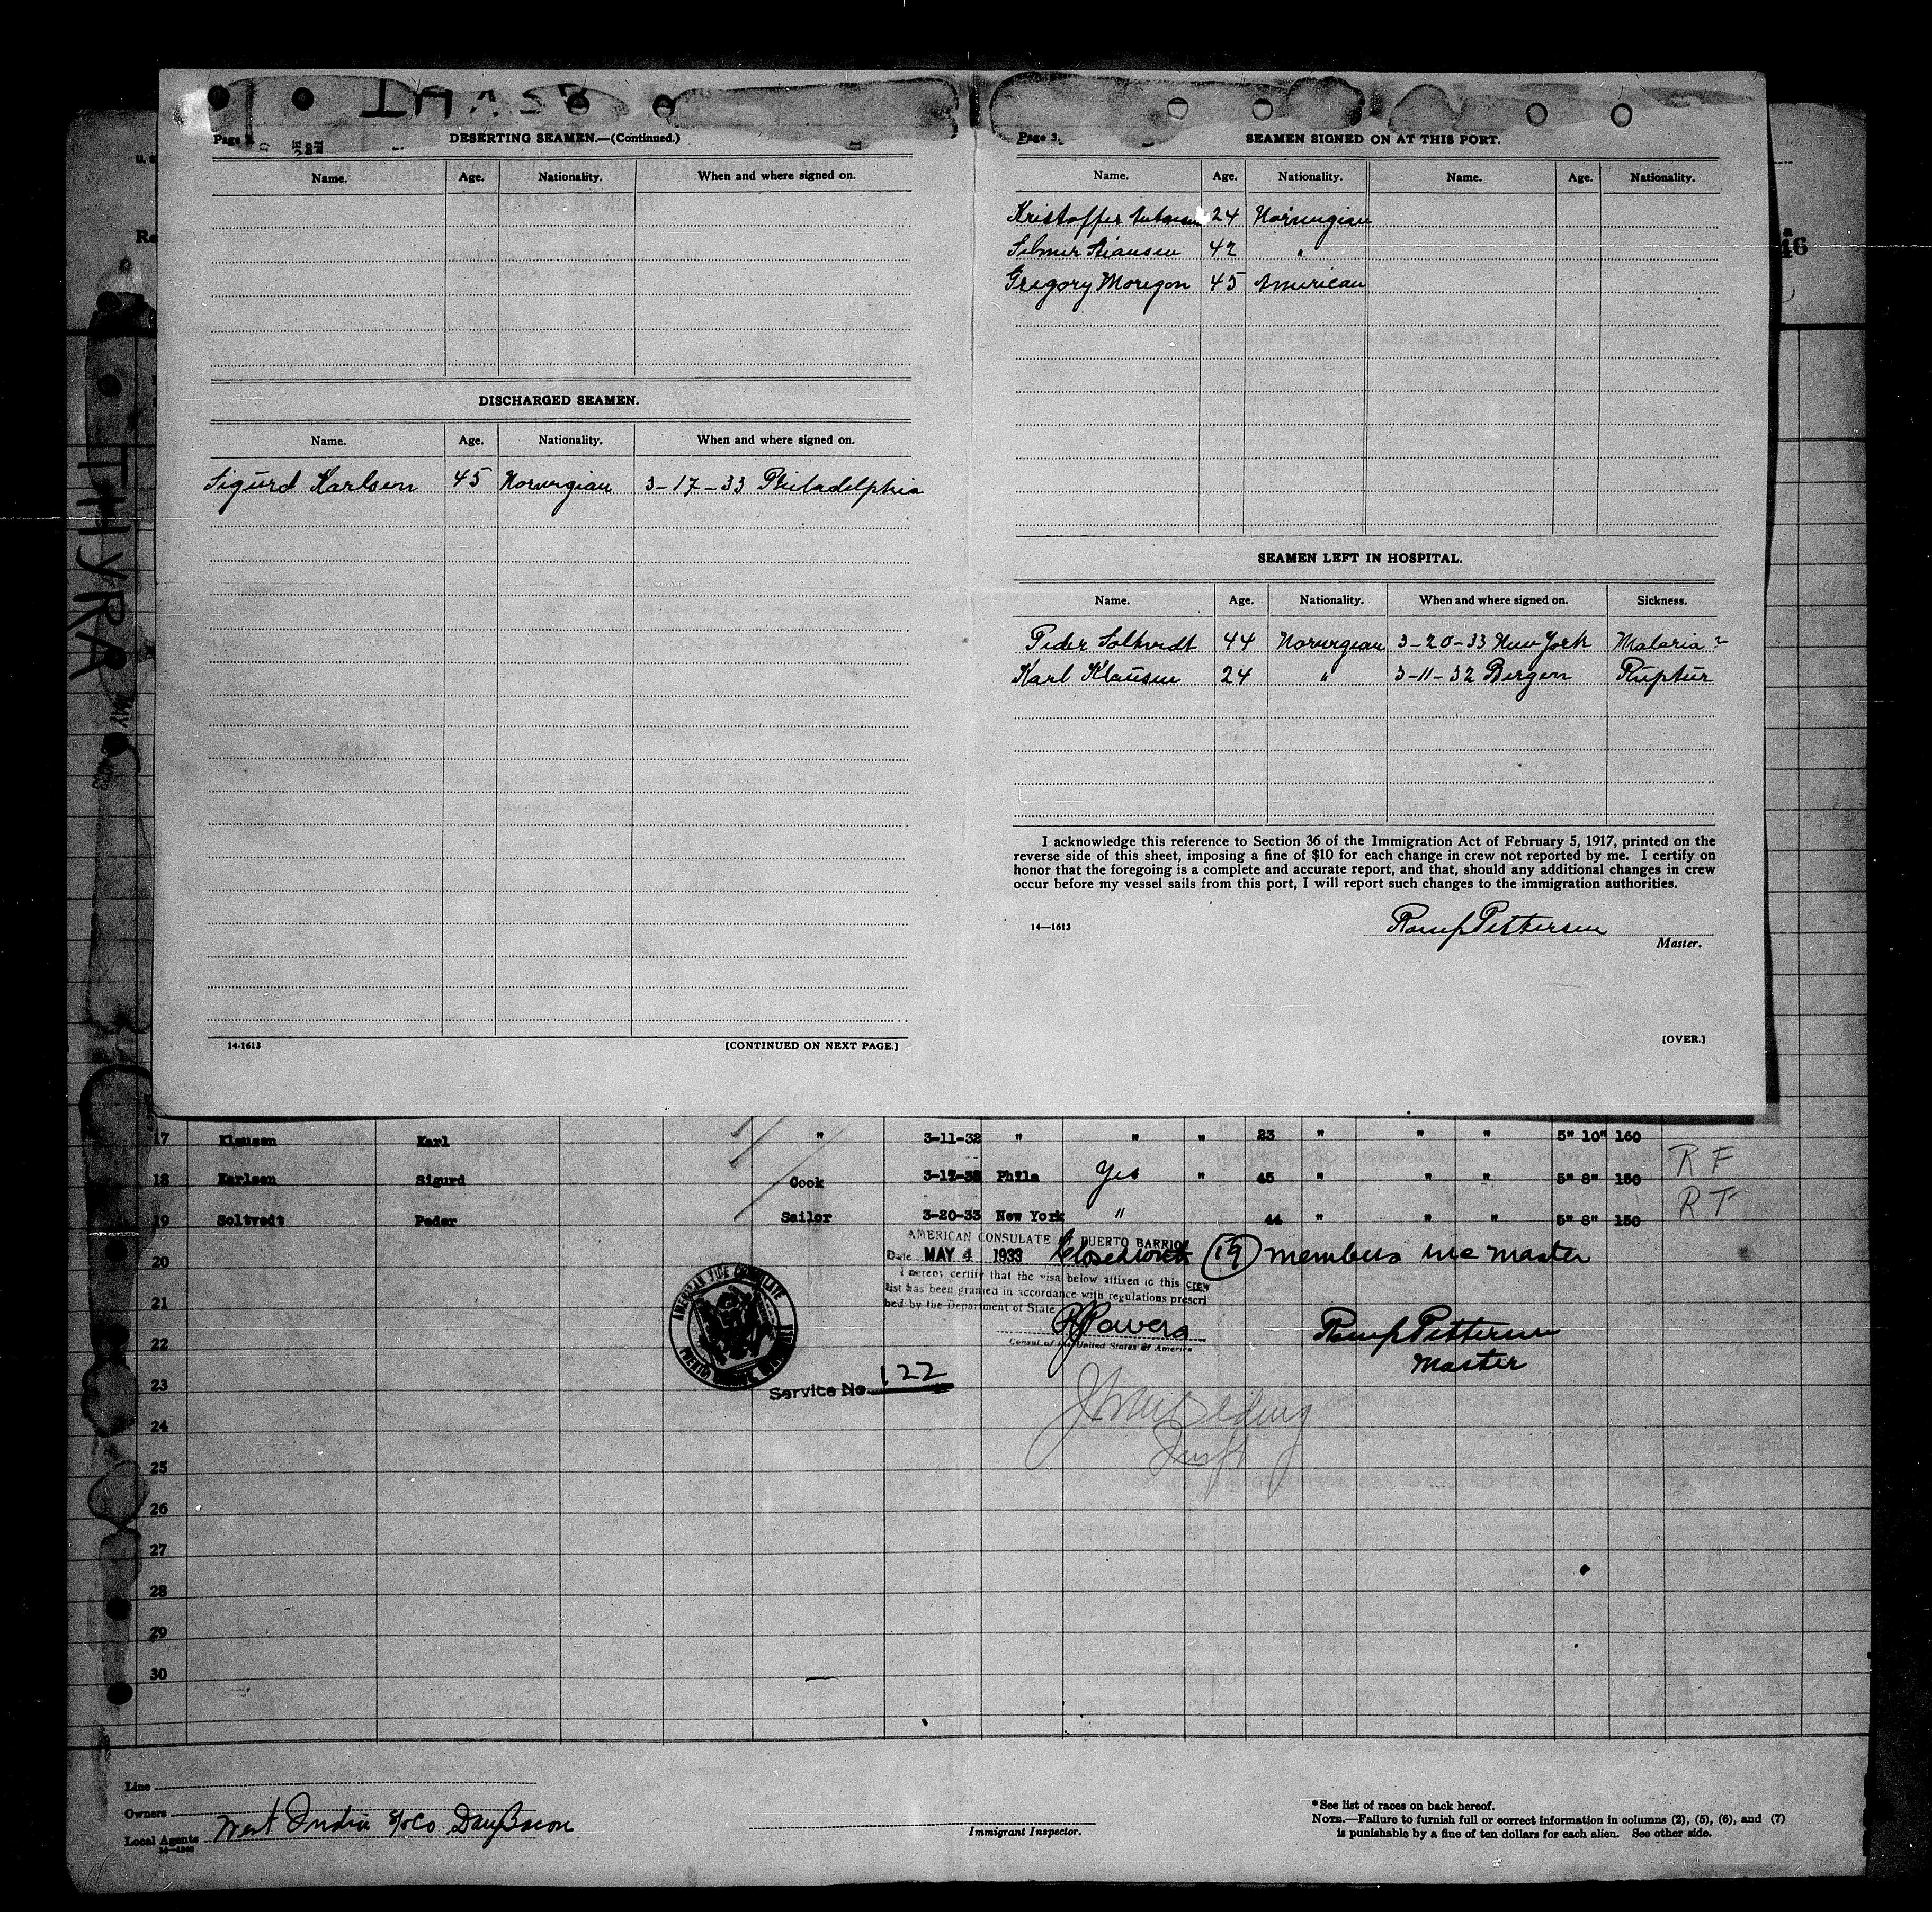 Page 2
DESERTING SEAMEN.—(Continued.)
Name. Age. Nationality. When and where signed on.
DISCHARGED SEAMEN.
Name. Age. Nationality. When and where signed on.
Sigurd Karlsen 45 Norwegian 3-17-33 Philadelphia
14-1613 [CONTINUED ON NEXT PAGE.]
Page 3.
SEAMEN SIGNED ON AT THIS PORT.
Name. Age. Nationality. Name. Age. Nationality.
Kristoffer 24 Norwegian
42 "
Gregory Moregon 45 American
SEAMEN LEFT IN HOSPITAL.
Name. Age. Nationality. When and where signed on. Sickness.
Peder Soltvedt 44 Norwegian 3-20-33 New York Malaria ?
Karl Klausen 24 " 3-11-32 Bergen Ruptur
I acknowledge this reference to Section 36 of the Immigration Act of February 5, 1917, printed on the
reverse side of this sheet, imposing a fine of $10 for each change in crew not reported by me. I certify on
honor that the foregoing is a complete and accurate report, and that, should any additional changes in crew
occur before my vessel sails from this port, I will report such changes to the immigration authorities.
14—1613
Pettersen
Master.
[OVER.]
THYRA
MAY
46
17 Klausen Karl " 3-11-32 " " " 23 " " " 5" 10" 160
18 Karlsen Sigurd Cook 3-17-33 Phila Yes " 45 " " " 5" 8" 150 R F
19 Soltvedt Peder Sailor 3-20-33 New York " 44 " " " 5" 8" 150 R F
AMERICAN CONSULATE PUERTO BARRIOS
20 Date MAY 4 1933 Closed with (19) members inc master
I hereby certify that the visa below affixed to this crew
list has been granted in accordance with regulations prescri
bed by the Department of State
AMERICAN VICE CONSULATE
PUERTO BARRIOS
21
22 Powers Pettersen
Consul of the United States of America
Master
Service No. 122
23
24
25
26
27
28
29
30
Line
Owners
Local Agents West India S/S Co Dan Bacon
Immigrant Inspector.
*See list of races on back hereof.
NOTE.—Failure to furnish full or correct information in columns (2), (5), (6), and (7)
is punishable by a fine of ten dollars for each alien. See other side.